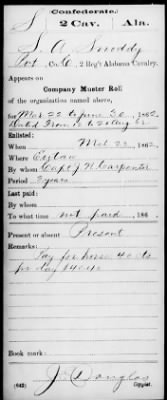 S
Confederate.
2 Cav.
Ala.
S. A. Smeddy
Pvt, Co. C, 2 Reg't Alabama Cavalry.
Appears on
Company Muster Roll
of the organization named above,
for Mar 22 to June 30, 1862.
Enlisted:
When Mch 22, 1862.
Where Eutaw
By whom Capt J W Carpenter
Period 3 years
Last paid:
By whom
To what time not paid, 186 .
Present or absent Present
Remarks:
Pay for horse 40 cts
per day $40.40
Book mark:
(642)
J. Douglas
Copyist.